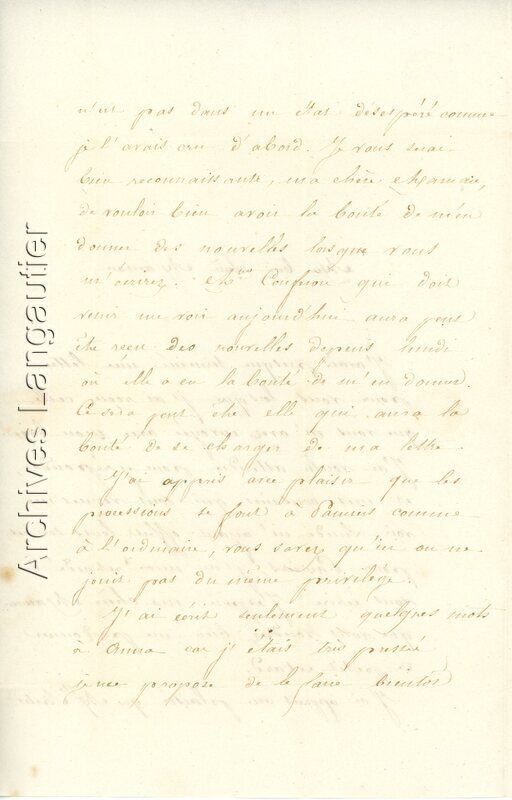 n'est pas dans un état désespéré comme
je l'avais cru d'abord. Je vous serai
bien reconnaissante, ma chère Maman,
de vouloir bien avoir la bonté de m'en
donner des nouvelles lorsque vous
m'écrirez. Mme qui doit
venir me voir aujourd'hui aura peut
être reçu des nouvelles depuis lundi
où elle a eu la bonté de m'en donner.
Ce sera peut être elle qui aura la
bonté de se charger de ma lettre.
J'ai appris avec plaisir que les
processions se font à Pamiers comme
à l'ordinaire, vous savez qu'ici on ne
jouit pas du même privilège.
J'ai écrit seulement quelques mots
à Anna car j'étais très pressée
je me propose de le faire bientôt
Archives Langautier